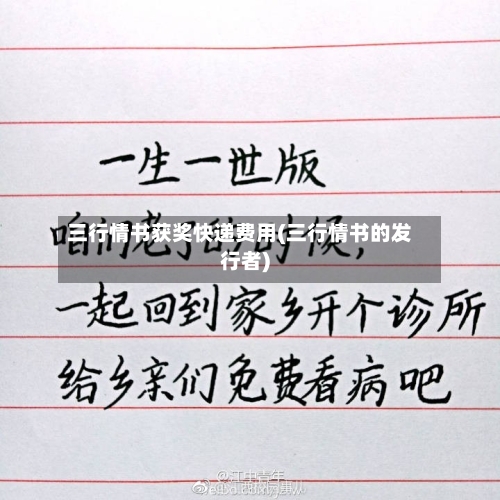 一生一世版
咱们老了的时候，
三行情书获奖快递费用(三行情书的发
行者)
一起回到家乡开个诊所
给乡亲们免费看病吧
@江中青年